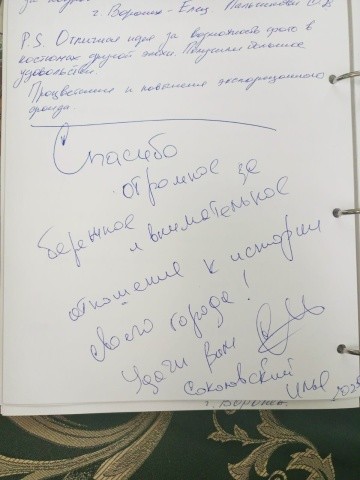 г. Воронеж - Елец
P.S. Отличная идея за возможность фото в
костюмах другой эпохи. Получили огромное
удовольствие.
Процветания и повышения экспозиционного
фонда
Спасибо
огромное за
бережное и внимательное
отношение к истории
своего города!
Удачи Вам
Соколовский
Илья
г. Воронеж